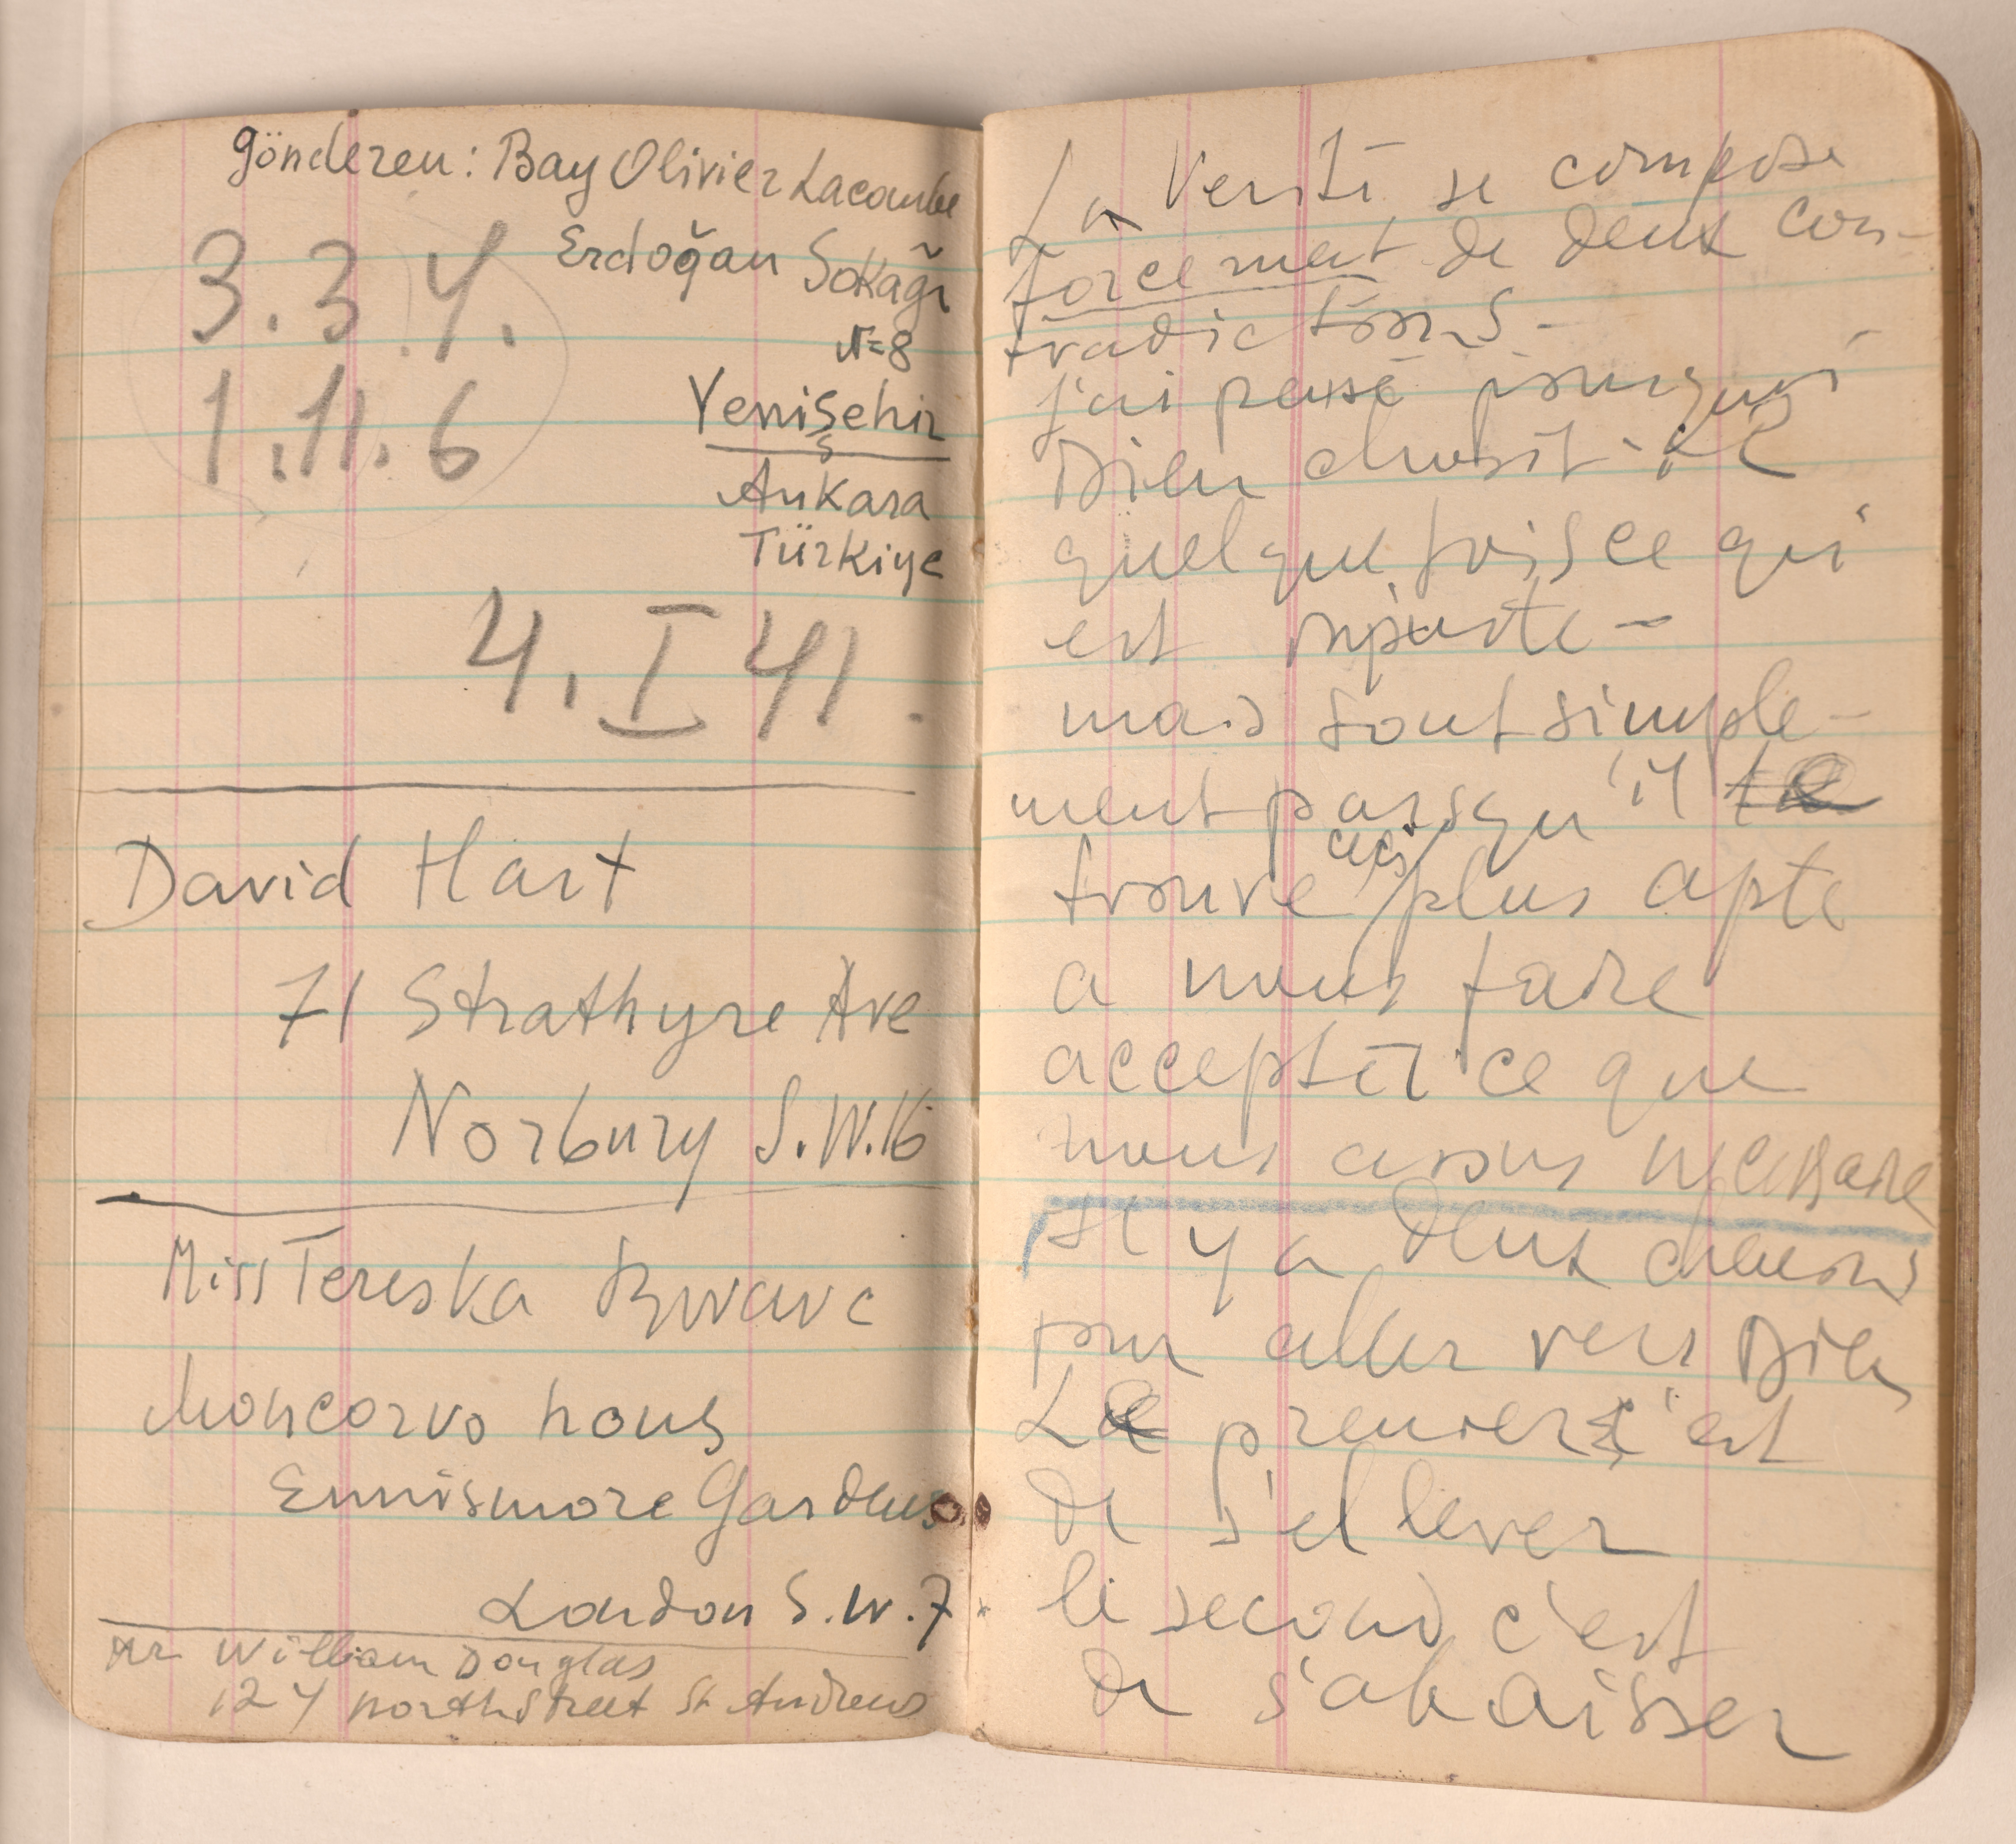 gönderen: Bay Olivier Lacombe
Erdoğan Sokağı
N=8
Yenişehir
Ankara
Türkiye
3.34.
1.11.6
4.I 41.
David Hart
71 Strathyre Ave
Norbury S.W.16
Miss Tereska
Moncorvo hous
Ennismore Gardens
London S.W.7
Mr William Douglas
124 north Street St Andrews
La Verité se compose
forcement de deux con-
tradictions-
j'ai pensé pourquoi
Dieu choisit-il
quelque fois ce qui
est injuste-
mais tout simple-
ment parsqu'il
trouve ceci plus apte
a nous faire
accepter ce que
nous avons
Il y a deux chemins
pour aller vers Dieu
Le premier c'est
de s'ellever
le second c'est
de s'abaisser